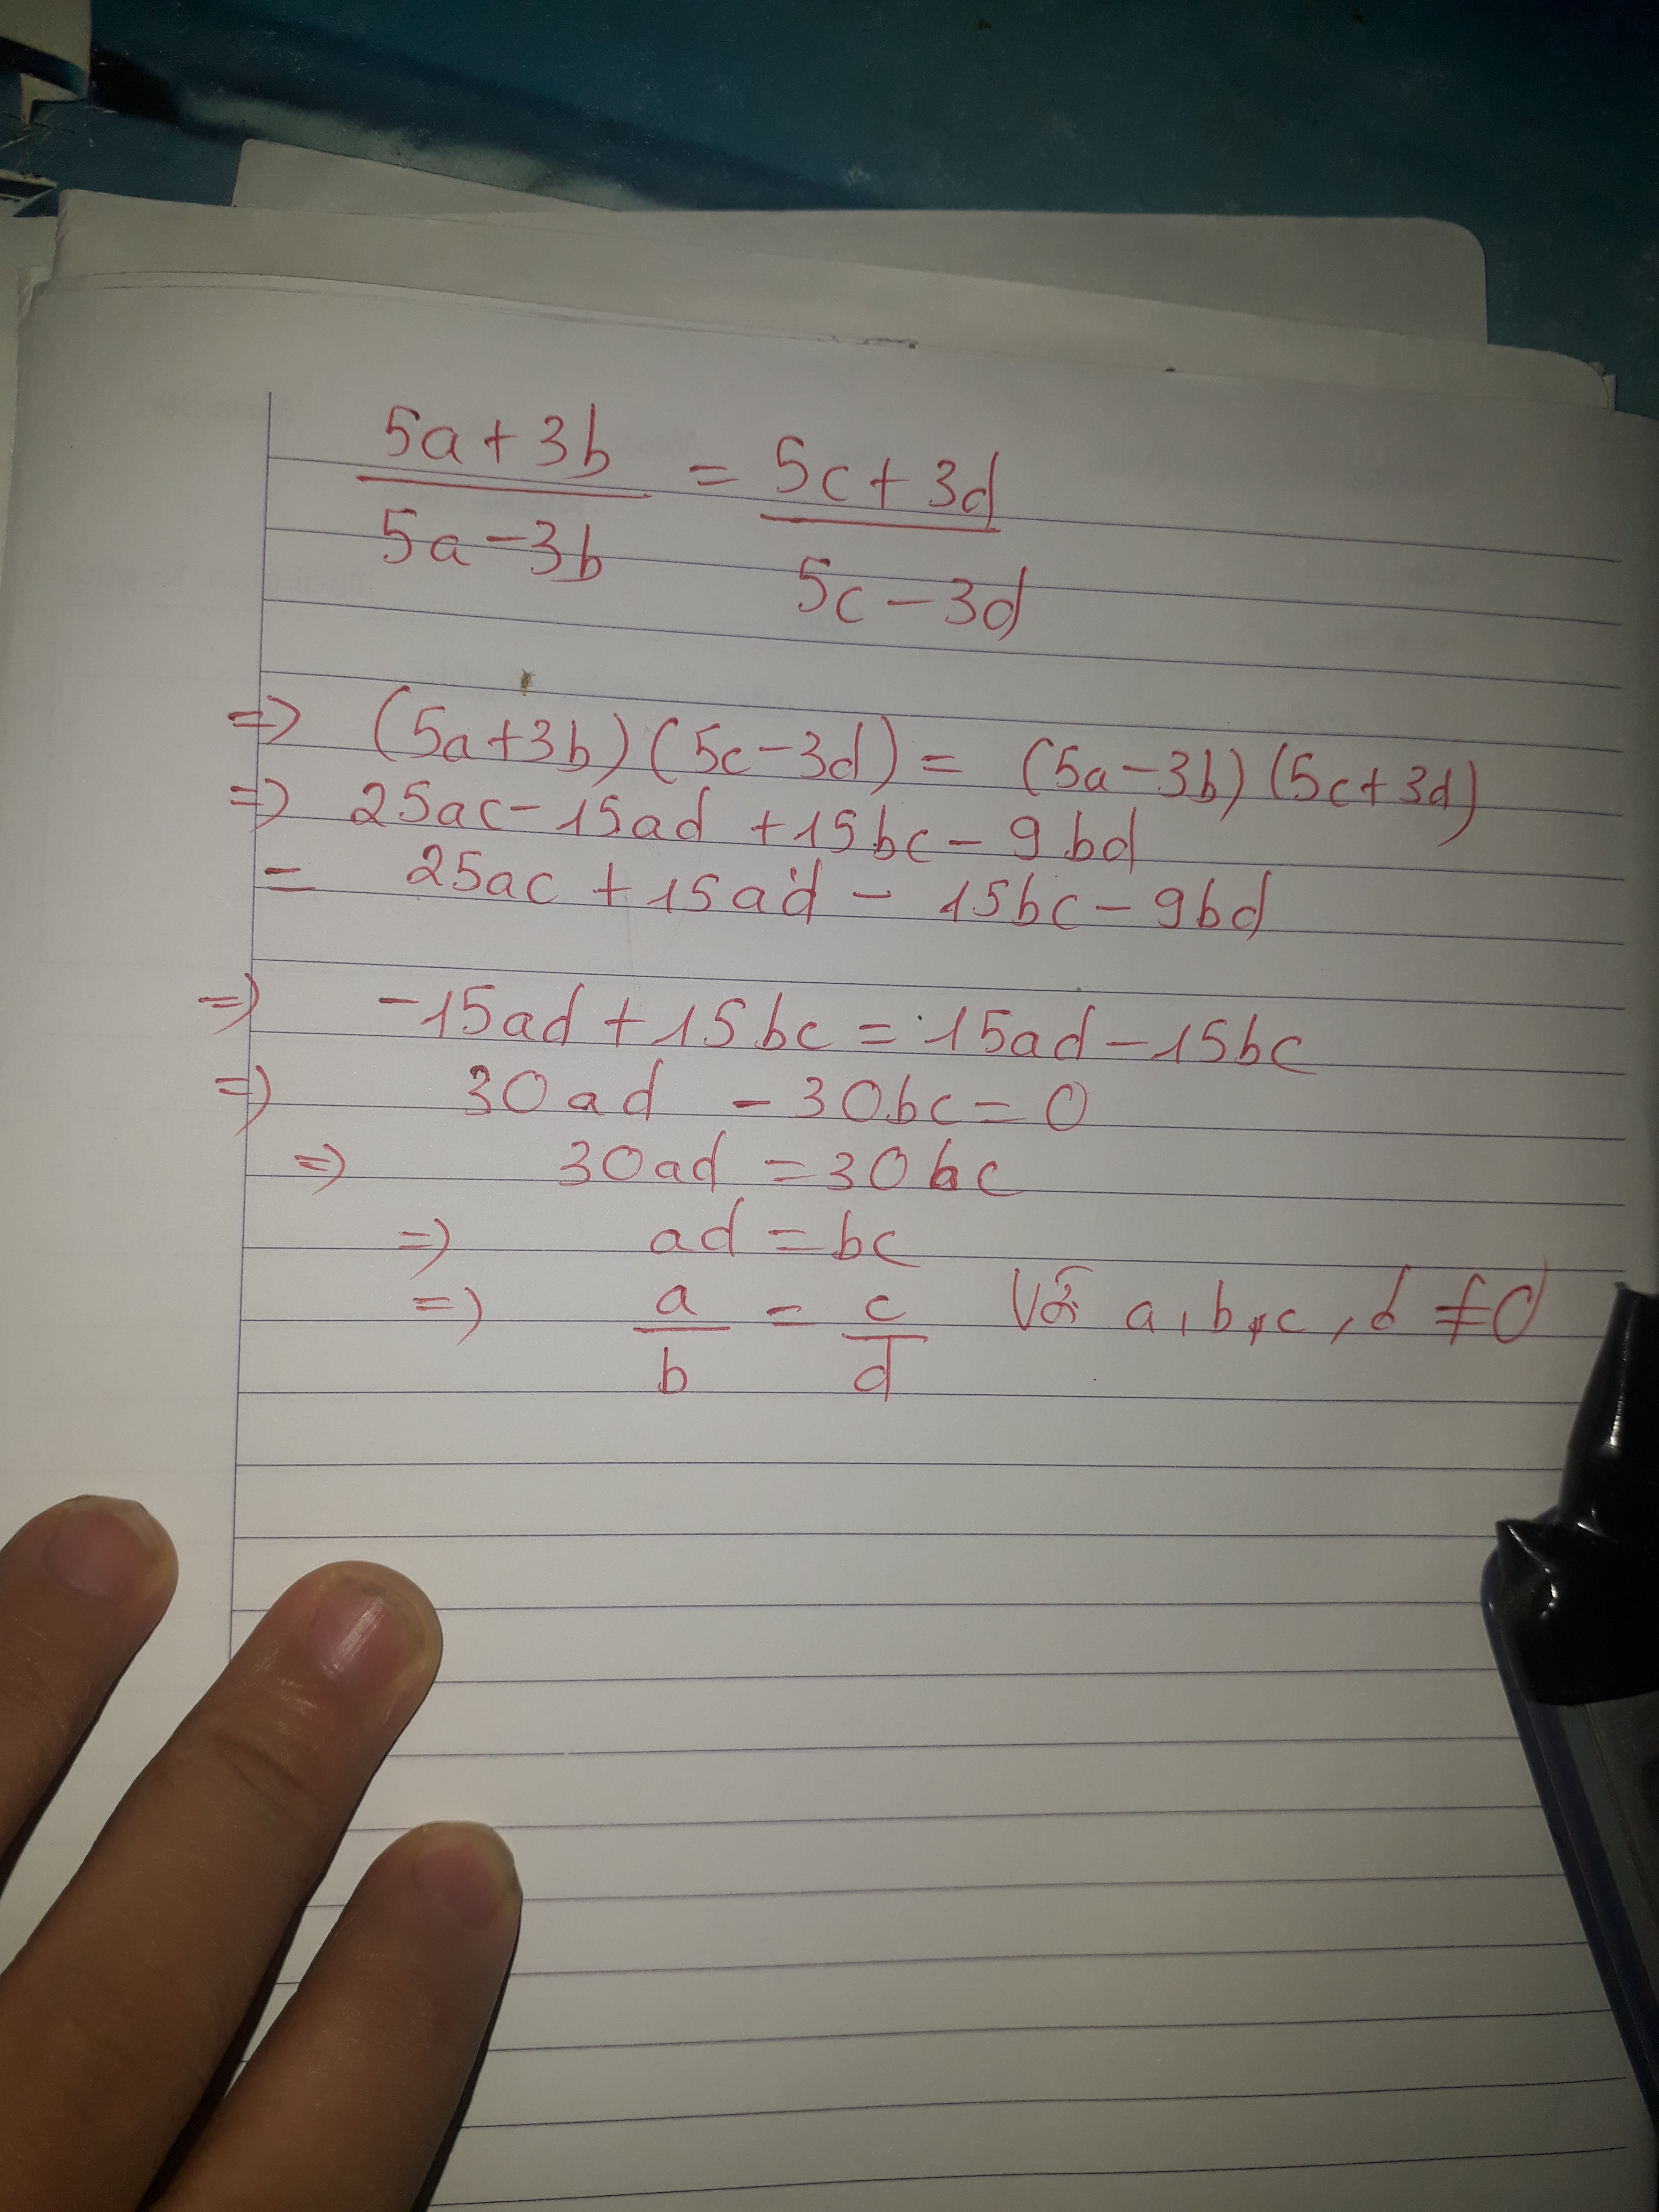 5a+3b/5a-3b = 5c+3d/5c-3d
=> (5a+3b)(5c-3d) = (5a-3b)(5c+3d)
=> 25ac-15ad +15bc-9bd
= 25ac +15ad - 15bc-9bd
=> -15ad+15bc=15ad-15bc
=> 30ad -30bc=0
=> 30ad =30bc
=> ad =bc
=> a/b = c/d Với a,b,c,d ≠0